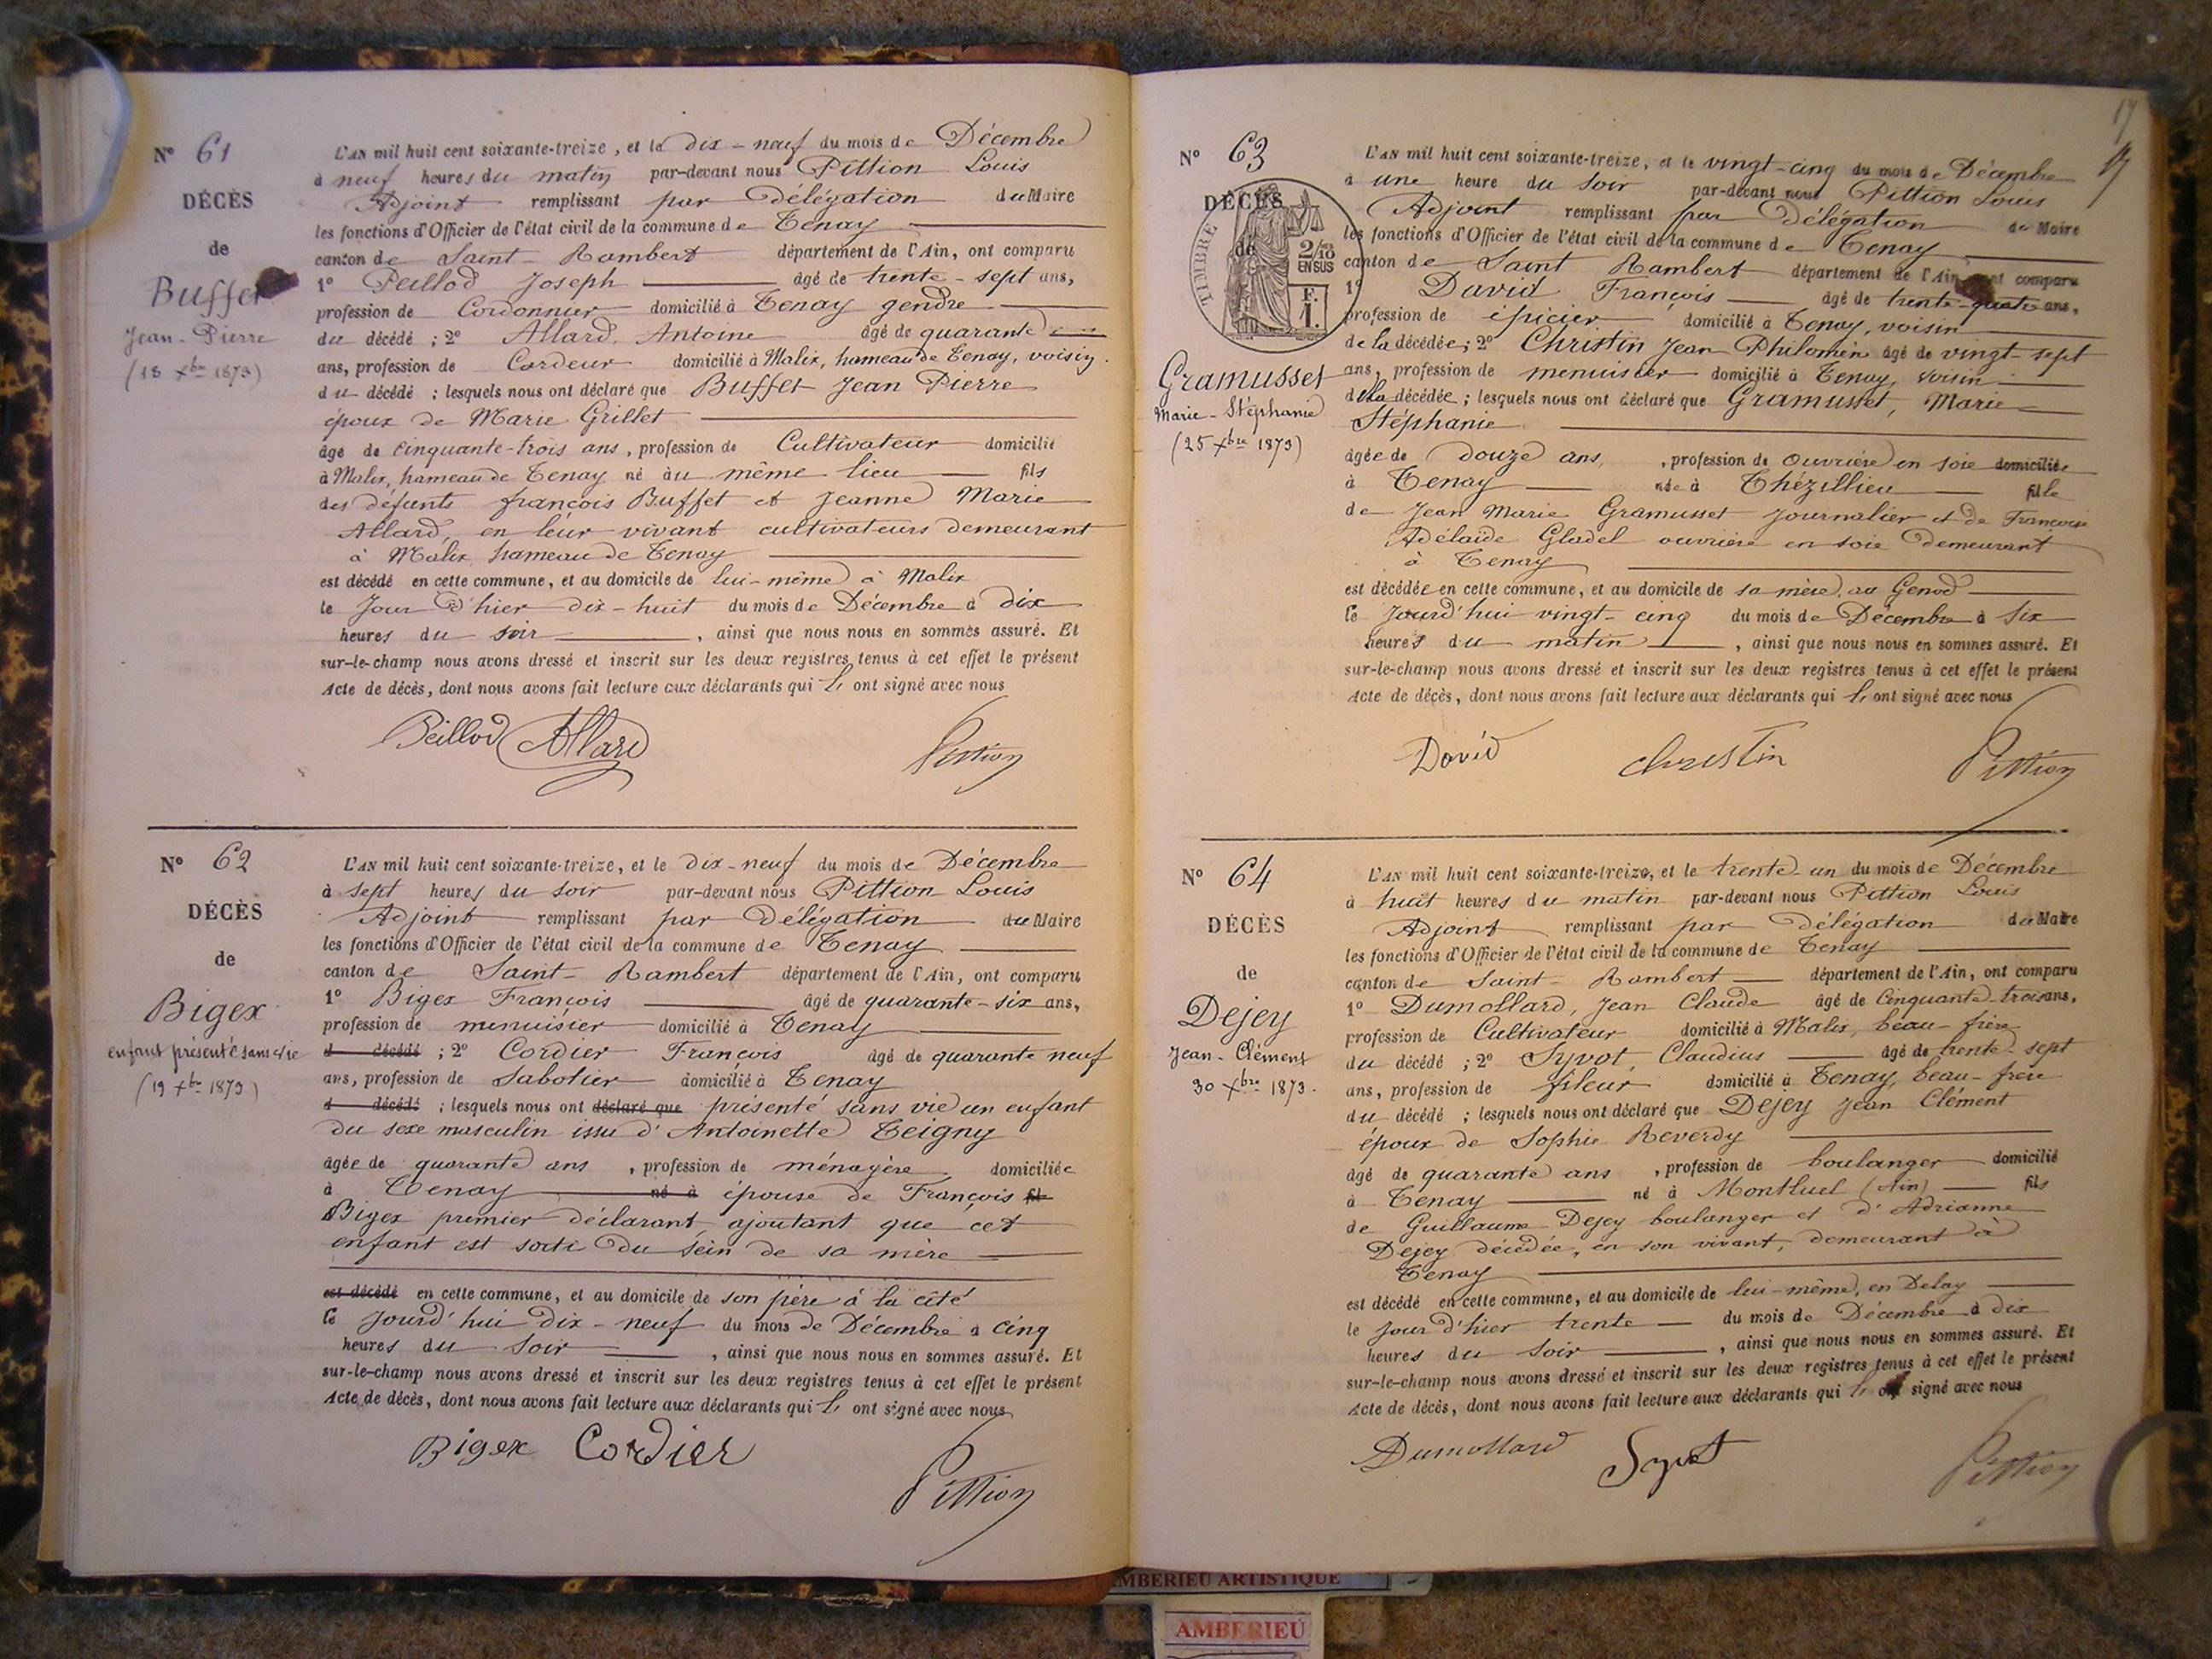 N° 61
DÉCÈS
de
Buffet
Jean-Pierre
(18 Xbre 1873)
L'AN mil huit cent soixante-treize, et le dix-neuf du mois de Décembre
à neuf heures du matin par-devant nous Pittion Louis
Adjoint remplissant par Délégation du Maire
les fonctions d'Officier de l'état civil de la commune de Tenay
canton de Saint-Rambert département de l'Ain, ont comparu
1° Peillod Joseph âgé de trente-sept ans,
profession de Cordonnier domicilié à Tenay gendre
du décédé ; 2° Allard Antoine âgé de quarante
ans, profession de Cardeur domicilié à Malix, hameau de Tenay, voisin
du décédé ; lesquels nous ont déclaré que Buffet Jean Pierre
époux de Marie Grillet
âgé de cinquante-trois ans, profession de Cultivateur domicilié
à Malix, hameau de Tenay né au même lieu fils
des défunts françois Buffet et Jeanne Marie
Allard, en leur vivant cultivateurs demeurant
à Malix hameau de Tenay
est décédé en cette commune, et au domicile de lui-même à Malix
le Jour d'hier dix-huit du mois de Décembre à dix
heures du soir , ainsi que nous nous en sommes assuré. Et
sur-le-champ nous avons dressé et inscrit sur les deux registres tenus à cet effet le présent
Acte de décès, dont nous avons fait lecture aux déclarants qui ont signé avec nous
Peillod Allard Pittion
N° 62
DÉCÈS
de
Bigex
enfant présenté sans vie
(19 Xbre 1873)
L'AN mil huit cent soixante-treize, et le dix-neuf du mois de Décembre
à sept heures du soir par-devant nous Pittion Louis
Adjoint remplissant par Délégation du Maire
les fonctions d'Officier de l'état civil de la commune de Tenay
canton de Saint-Rambert département de l'Ain, ont comparu
1° Bigex François âgé de quarante-six ans,
profession de menuisier domicilié à Tenay
d décédé ; 2° Cordier François âgé de quarante neuf
ans, profession de Sabotier domicilié à Tenay
d décédé ; lesquels nous ont déclaré que présenté sans vie un enfant
du sexe masculin issu d'Antoinette Teigny
âgée de quarante ans , profession de ménagère domiciliée
à Tenay né à épouse de François fil
Bigex premier déclarant ajoutant que cet
enfant est sorti du sein de sa mère
est décédé en cette commune, et au domicile de son père à la cité
le Jourd'hui dix-neuf du mois de Décembre à cinq
heures du soir , ainsi que nous nous en sommes assuré. Et
sur-le-champ nous avons dressé et inscrit sur les deux registres tenus à cet effet le présent
Acte de décès, dont nous avons fait lecture aux déclarants qui ont signé avec nous
Bigex Cordier Pittion
17
N° 63
DÉCÈS
de
TIMBRE
2/10
EN SUS
F.
1.
Gramusset
Marie-Stéphanie
(25 Xbre 1873)
L'AN mil huit cent soixante-treize, et le vingt-cinq du mois de Décembre
à une heure du soir par-devant nous Pittion Louis
Adjoint remplissant par Délégation du Maire
les fonctions d'Officier de l'état civil de la commune de Tenay
canton de Saint Rambert département de l'Ain, ont comparu
1° David François âgé de trente-quatre ans,
profession de épicier domicilié à Tenay, voisin
de la décédée ; 2° Christin Jean Philomèn âgé de vingt-sept
ans, profession de menuisier domicilié à Tenay, voisin
de la décédée ; lesquels nous ont déclaré que Gramusset, Marie
Stéphanie
âgée de douze ans, , profession de ouvrière en soie domiciliée
à Tenay née à Thézillieu fille
de Jean Marie Gramusset Journalier et de Françoise
Adélaïde Gladel ouvrière en soie demeurant
à Tenay
est décédée en cette commune, et au domicile de sa mère, au Genod
le Jourd'hui vingt-cinq du mois de Décembre à six
heures du matin , ainsi que nous nous en sommes assuré. Et
sur-le-champ nous avons dressé et inscrit sur les deux registres tenus à cet effet le présent
Acte de décès, dont nous avons fait lecture aux déclarants qui ont signé avec nous
David Christin Pittion
N° 64
DÉCÈS
de
Dejey
Jean-Clément
30 Xbre 1873.
L'AN mil huit cent soixante-treize, et le trente un du mois de Décembre
à huit heures du matin par-devant nous Pittion Louis
Adjoint remplissant par délégation du Maire
les fonctions d'Officier de l'état civil de la commune de Tenay
canton de Saint-Rambert département de l'Ain, ont comparu
1° Dumollard, Jean Claude âgé de cinquante-trois ans,
profession de Cultivateur domicilié à Malix, beau-frère
du décédé ; 2° Syvot, Claudius âgé de trente-sept
ans, profession de fileur domicilié à Tenay, beau-frère
du décédé ; lesquels nous ont déclaré que Dejey Jean Clément
époux de Sophie Reverdy
âgé de quarante ans , profession de boulanger domicilié
à Tenay né à Montluel (Ain) fils
de Guillaume Dejey boulanger et d'Adrianne
Dejey décédée, en son vivant, demeurant à
Tenay
est décédé en cette commune, et au domicile de lui-même, en Delay
le Jour d'hier trente du mois de Décembre à dix
heures du soir , ainsi que nous nous en sommes assuré. Et
sur-le-champ nous avons dressé et inscrit sur les deux registres tenus à cet effet le présent
Acte de décès, dont nous avons fait lecture aux déclarants qui ont signé avec nous
Dumollard Syvot Pittion
AMBERIEU ARTISTIQUE
AMBERIEU